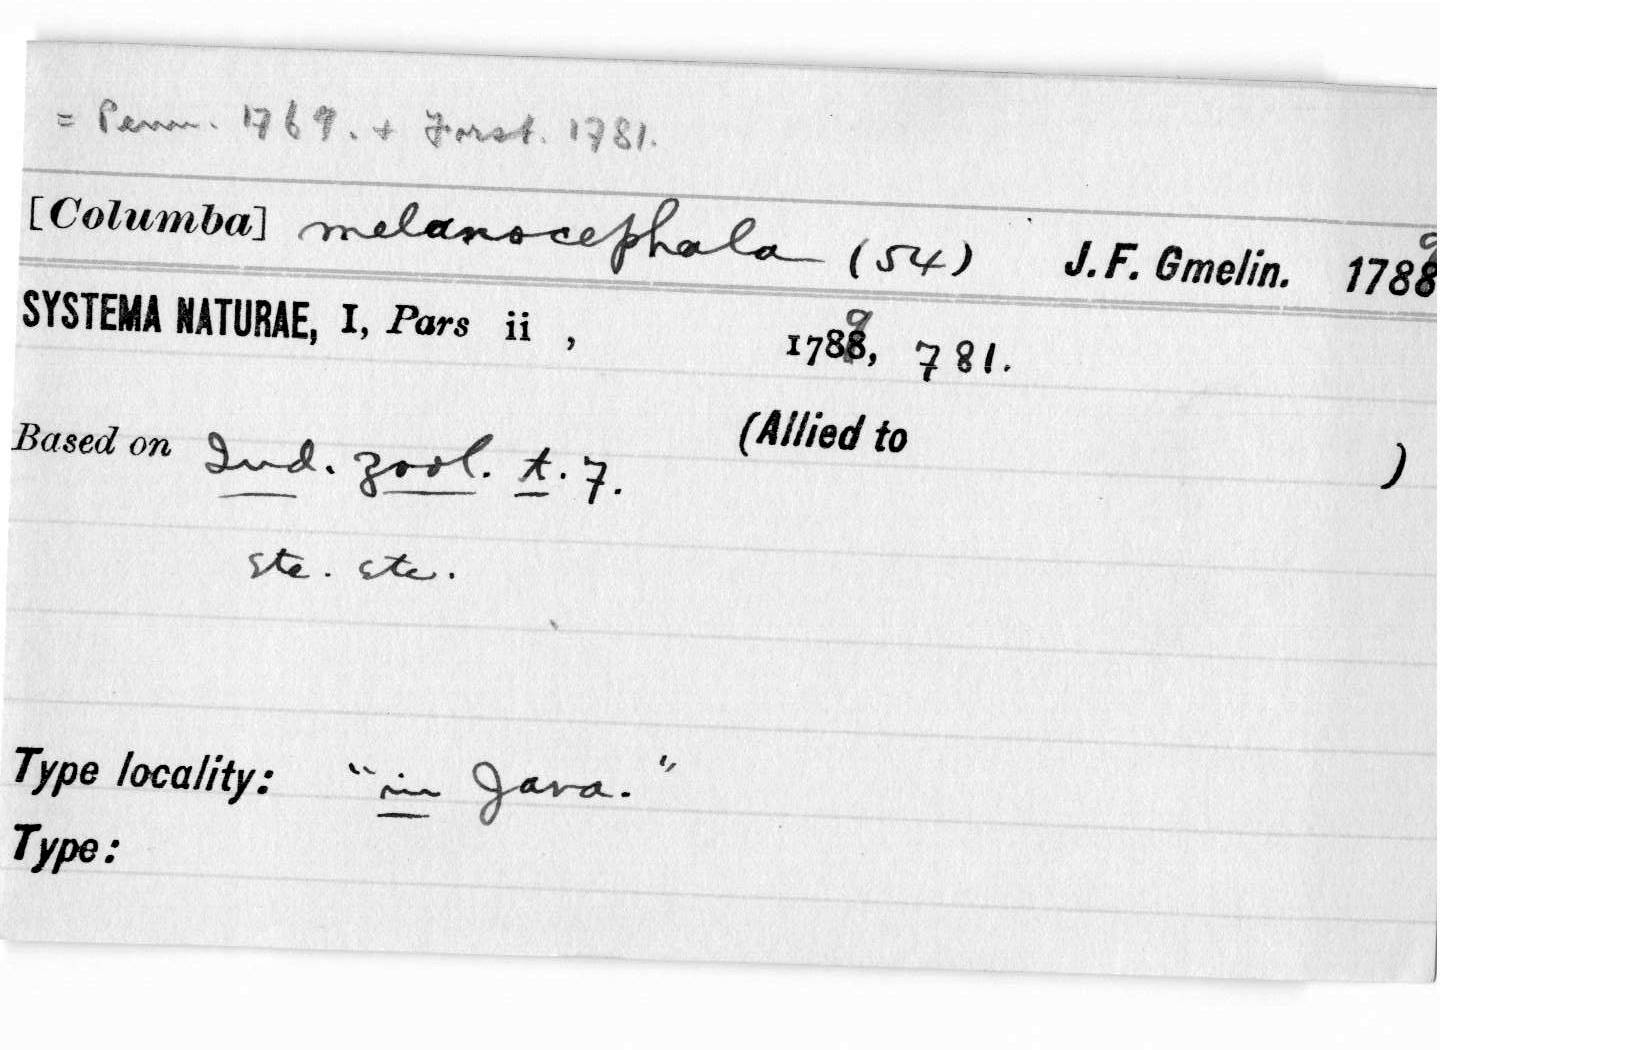 = Penn. 1769. + Forst. 1781.
[Columba] melanocephala (54) J. F. Gmelin. 1789
SYSTEMA NATURAE, I, Pars ii , 1789, 781.
Based on Ind. zool. t. 7. (Allied to )
etc. etc.
Type locality: "in Java."
Type: